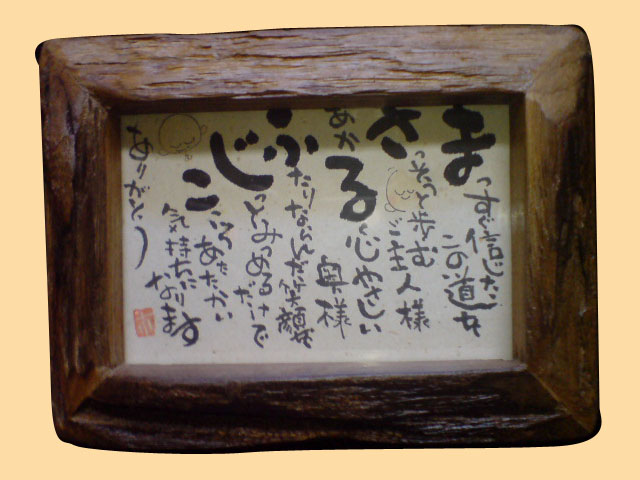 まっすぐ信じた
この道を
さっそうと歩む
ご主人様
あかるく心やさしい
奥様
ふたりならんだ笑顔を
じっとみつめるだけで
こころあたたかい
気持ちになります
ありがとう